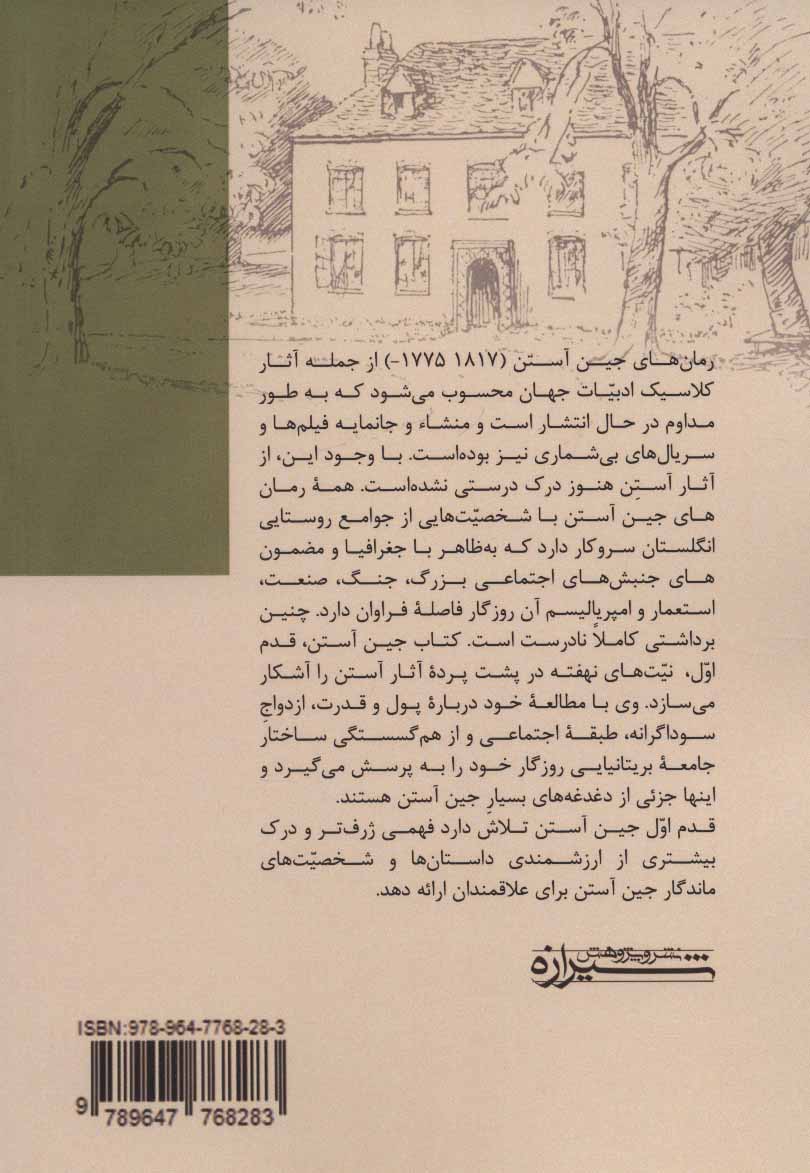 رمان‌های جین آستن (۱۸۱۷ ۱۷۷۵-) از جمله آثار
کلاسیک ادبیّات جهان محسوب می‌شود که به طور
مداوم در حال انتشار است و منشاء و جانمایه فیلم‌ها و
سریال‌های بی‌شماری نیز بوده‌است. با وجود این، از
آثار آستِن هنوز درک درستی نشده‌است. همهٔ رمان
های جین آستن با شخصیّت‌هایی از جوامع روستایی
انگلستان سروکار دارد که به‌ظاهر با جغرافیا و مضمون
های جنبش‌های اجتماعی بزرگ، جنگ، صنعت،
استعمار و امپریالیسم آن روزگار فاصلهٔ فراوان دارد. چنین
برداشتی کاملاً نادرست است. کتاب جین آستن، قدم
اوّل، نیّت‌های نهفته در پشت پردهٔ آثار آستن را آشکار
می‌سازد. وی با مطالعهٔ خود دربارهٔ پول و قدرت، ازدواجِ
سوداگرانه، طبقهٔ اجتماعی و از هم‌گسستگی ساختار
جامعهٔ بریتانیایی روزگار خود را به پرسش می‌گیرد و
اینها جزئی از دغدغه‌های بسیارِ جین آستن هستند.
قدم اوّل جین آستن تلاش دارد فهمی ژرف‌تر و درک
بیشتری از ارزشمندی داستان‌ها و شخصیّت‌های
ماندگار جین آستن برای علاقمندان ارائه دهد.
نشر و پژوهش
شیرازه
ISBN:978-964-7768-28-3
9 789647 768283